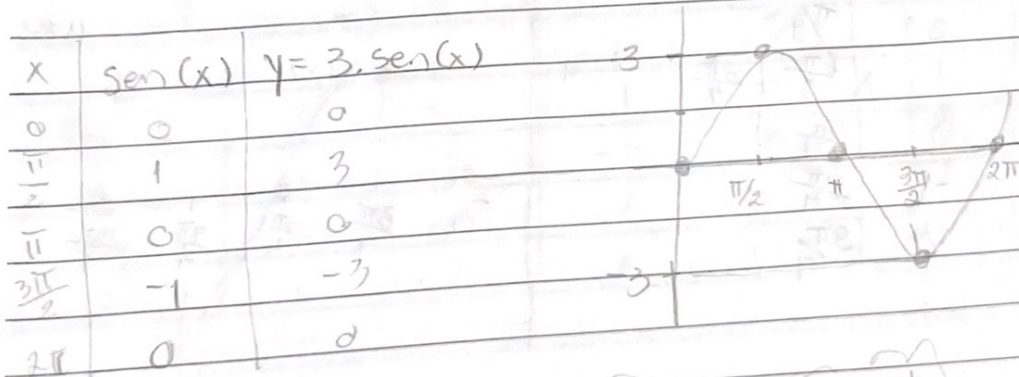 x sen(x) y= 3.sen(x)
0 0 0
π/2 1 3
π 0 0
3π/2 -1 -3
2π 0 0
3
π/2 π 3π/2 2π
-3